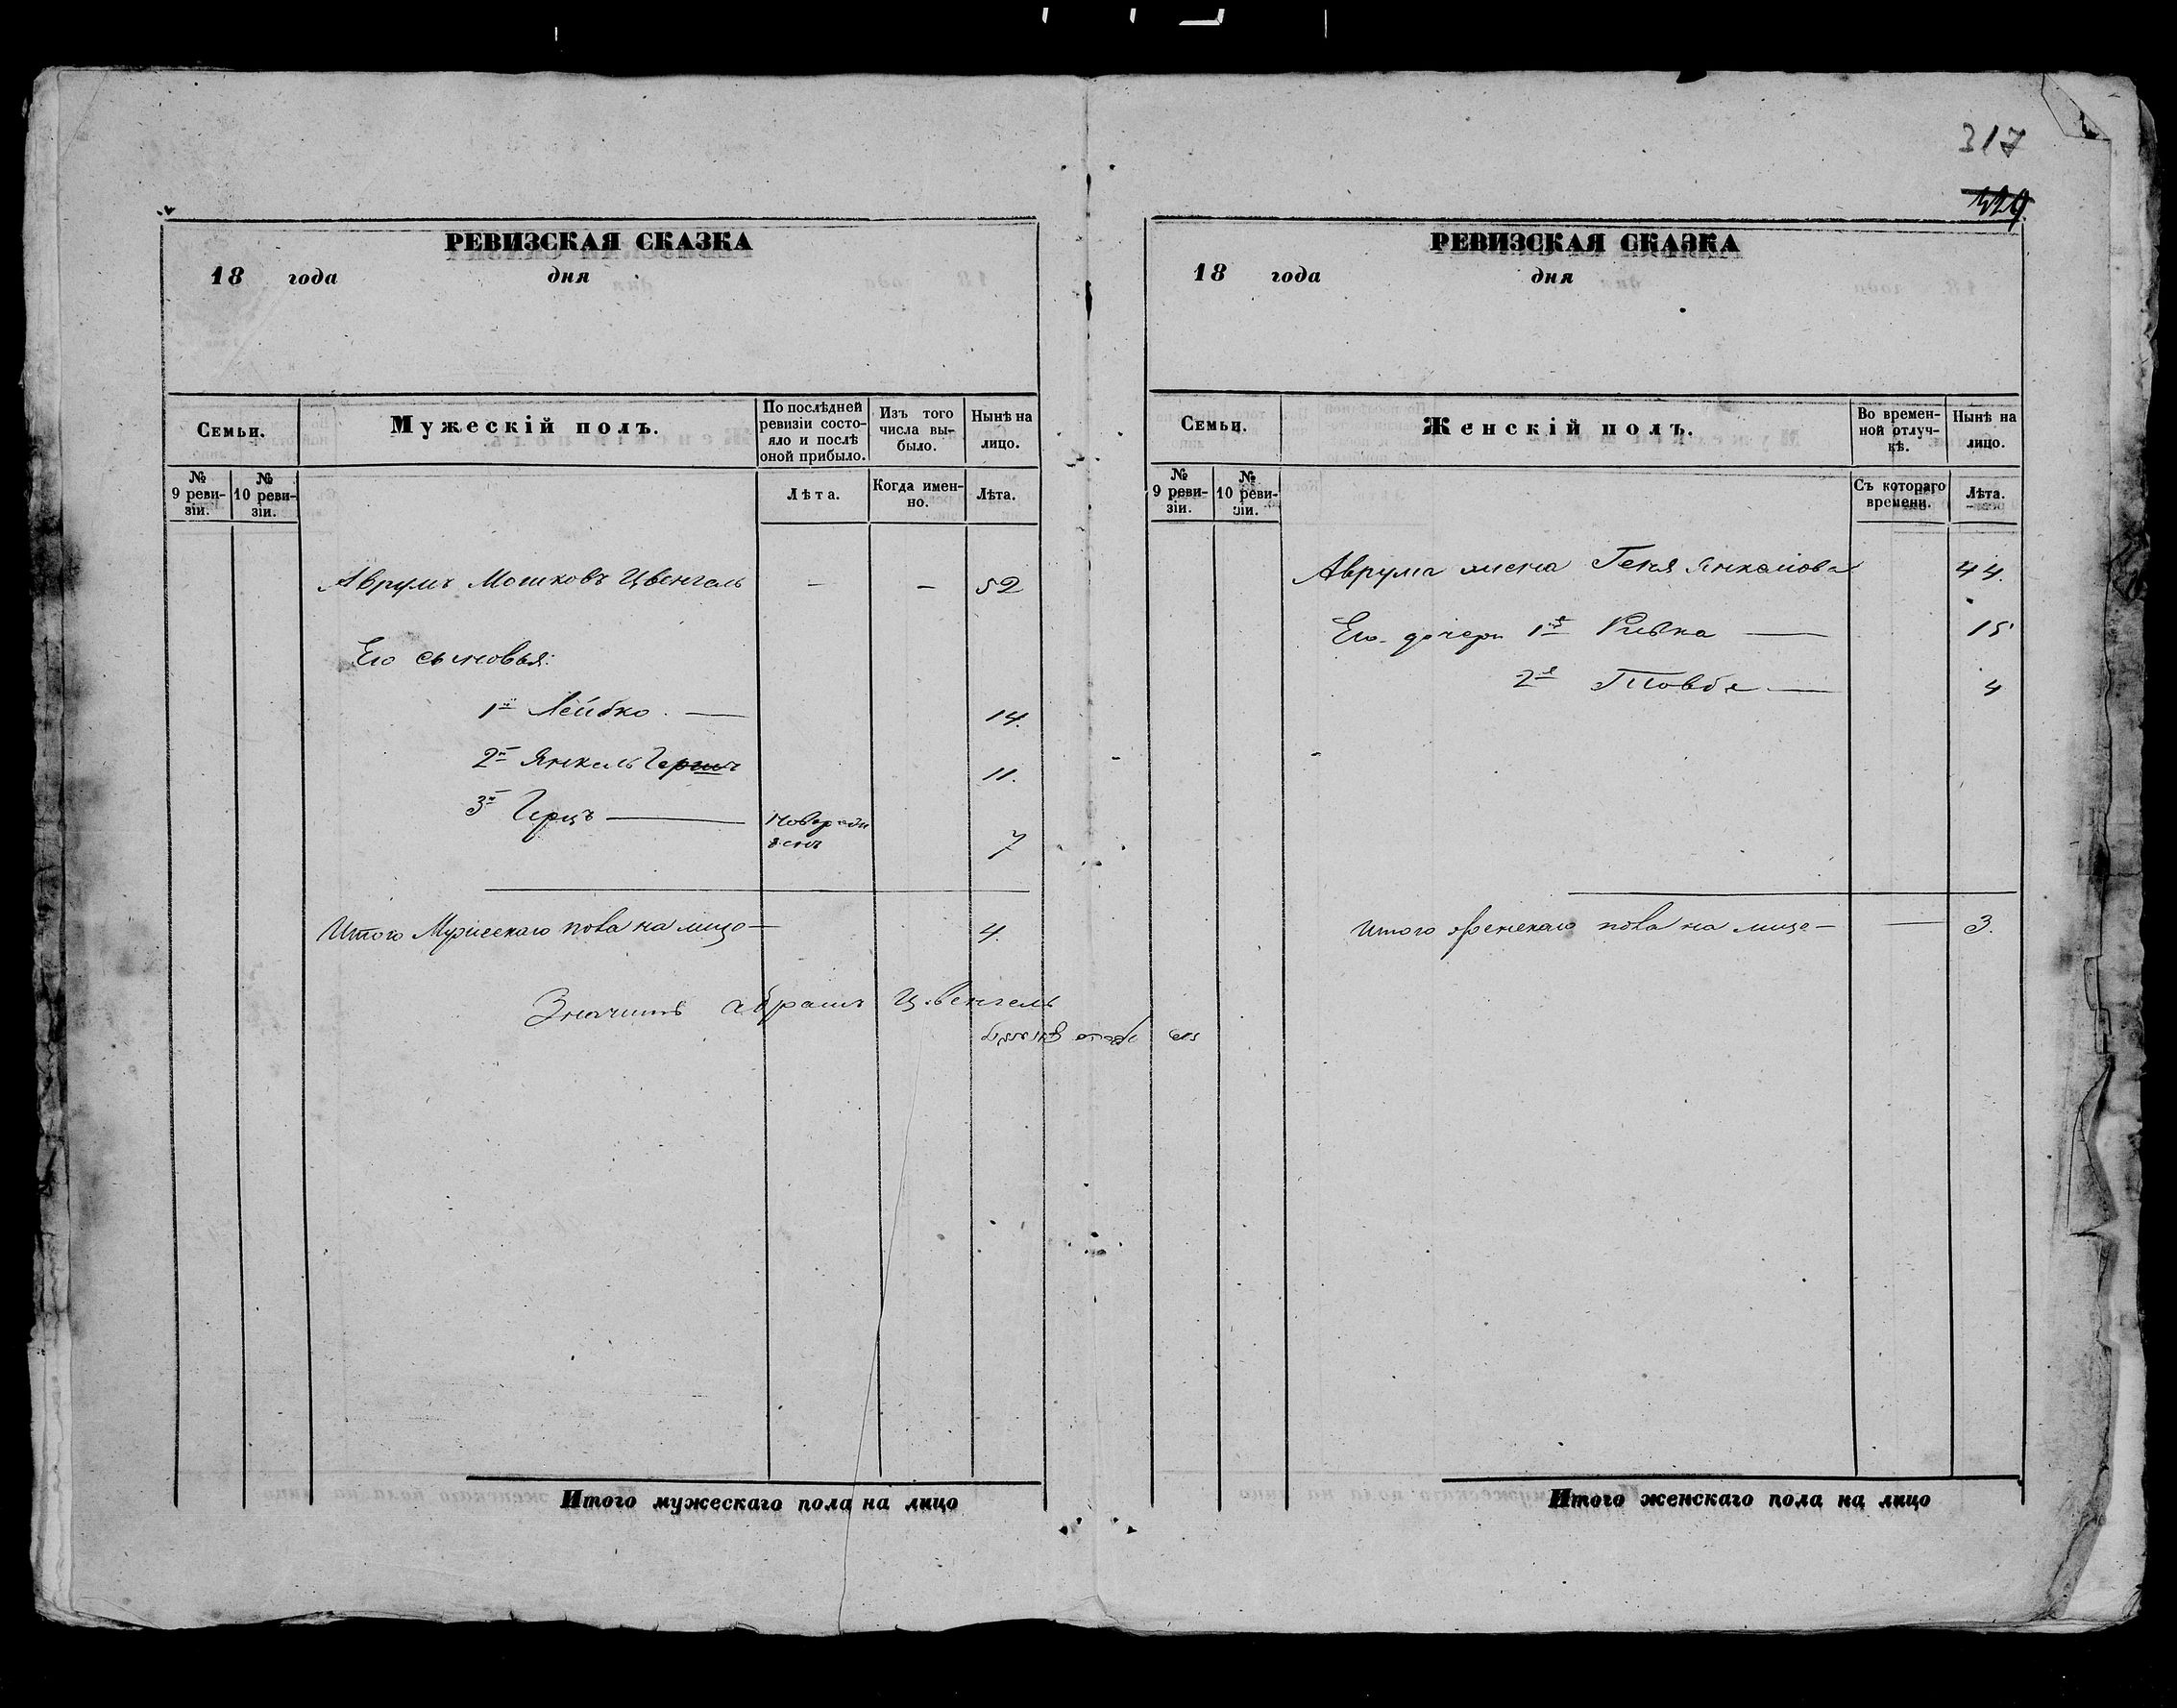 317
РЕВИЗСКАЯ СКАЗКА
18 года дня
Семьи.
Мужескій полъ.
По послѣдней ревизіи состояло и послѣ оной прибыло.
Изъ того числа выбыло.
Нынѣ на лицо.
№ 9 ревизіи.
№ 10 ревизіи.
Лѣта.
Когда именно.
Лѣта.
Аврумъ Мошковъ Цвенгель — — 52
Его сыновья:
1й Лейбко. — 14.
2й Янкель 11.
3й Герцъ — новорожденъ 7
Итого Мужескаго пола на лицо — 4.
Значитъ Абрамъ Цвенгель
Итого мужескаго пола на лицо
РЕВИЗСКАЯ СКАЗКА
18 года дня
Семьи.
Женскій полъ.
Во временной отлучкѣ.
Нынѣ на лицо.
№ 9 ревизіи.
№ 10 ревизіи.
Съ котораго времени.
Лѣта.
Аврума жена Геня Янкелова 44.
Его дочери 1я Ривка — 15
2я Товба — 4
Итого женскаго пола на лице — — 3.
Итого женскаго пола на лицо